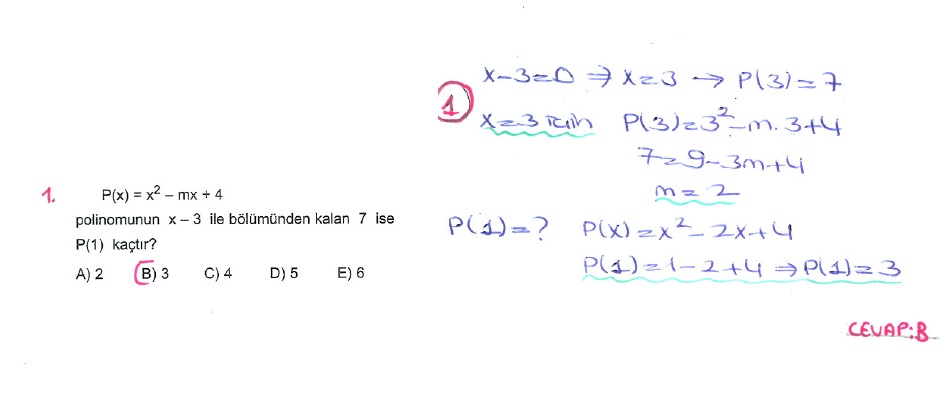 1. P(x) = x² – mx + 4
polinomunun x – 3 ile bölümünden kalan 7 ise
P(1) kaçtır?
A) 2 B) 3 C) 4 D) 5 E) 6
1
x-3=0 ⇒ x=3 → P(3)=7
x=3 için P(3)=3²-m.3+4
7=9-3m+4
m=2
P(1)=? P(x)=x²-2x+4
P(1)=1-2+4 ⇒ P(1)=3
CEVAP:B